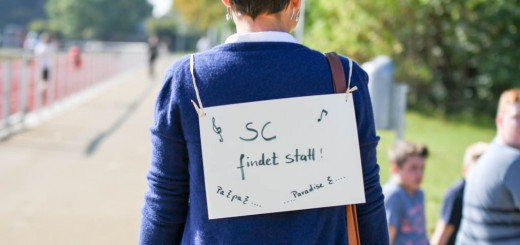 SC
findet statt!
PaEpaE.... ....Paradise E....